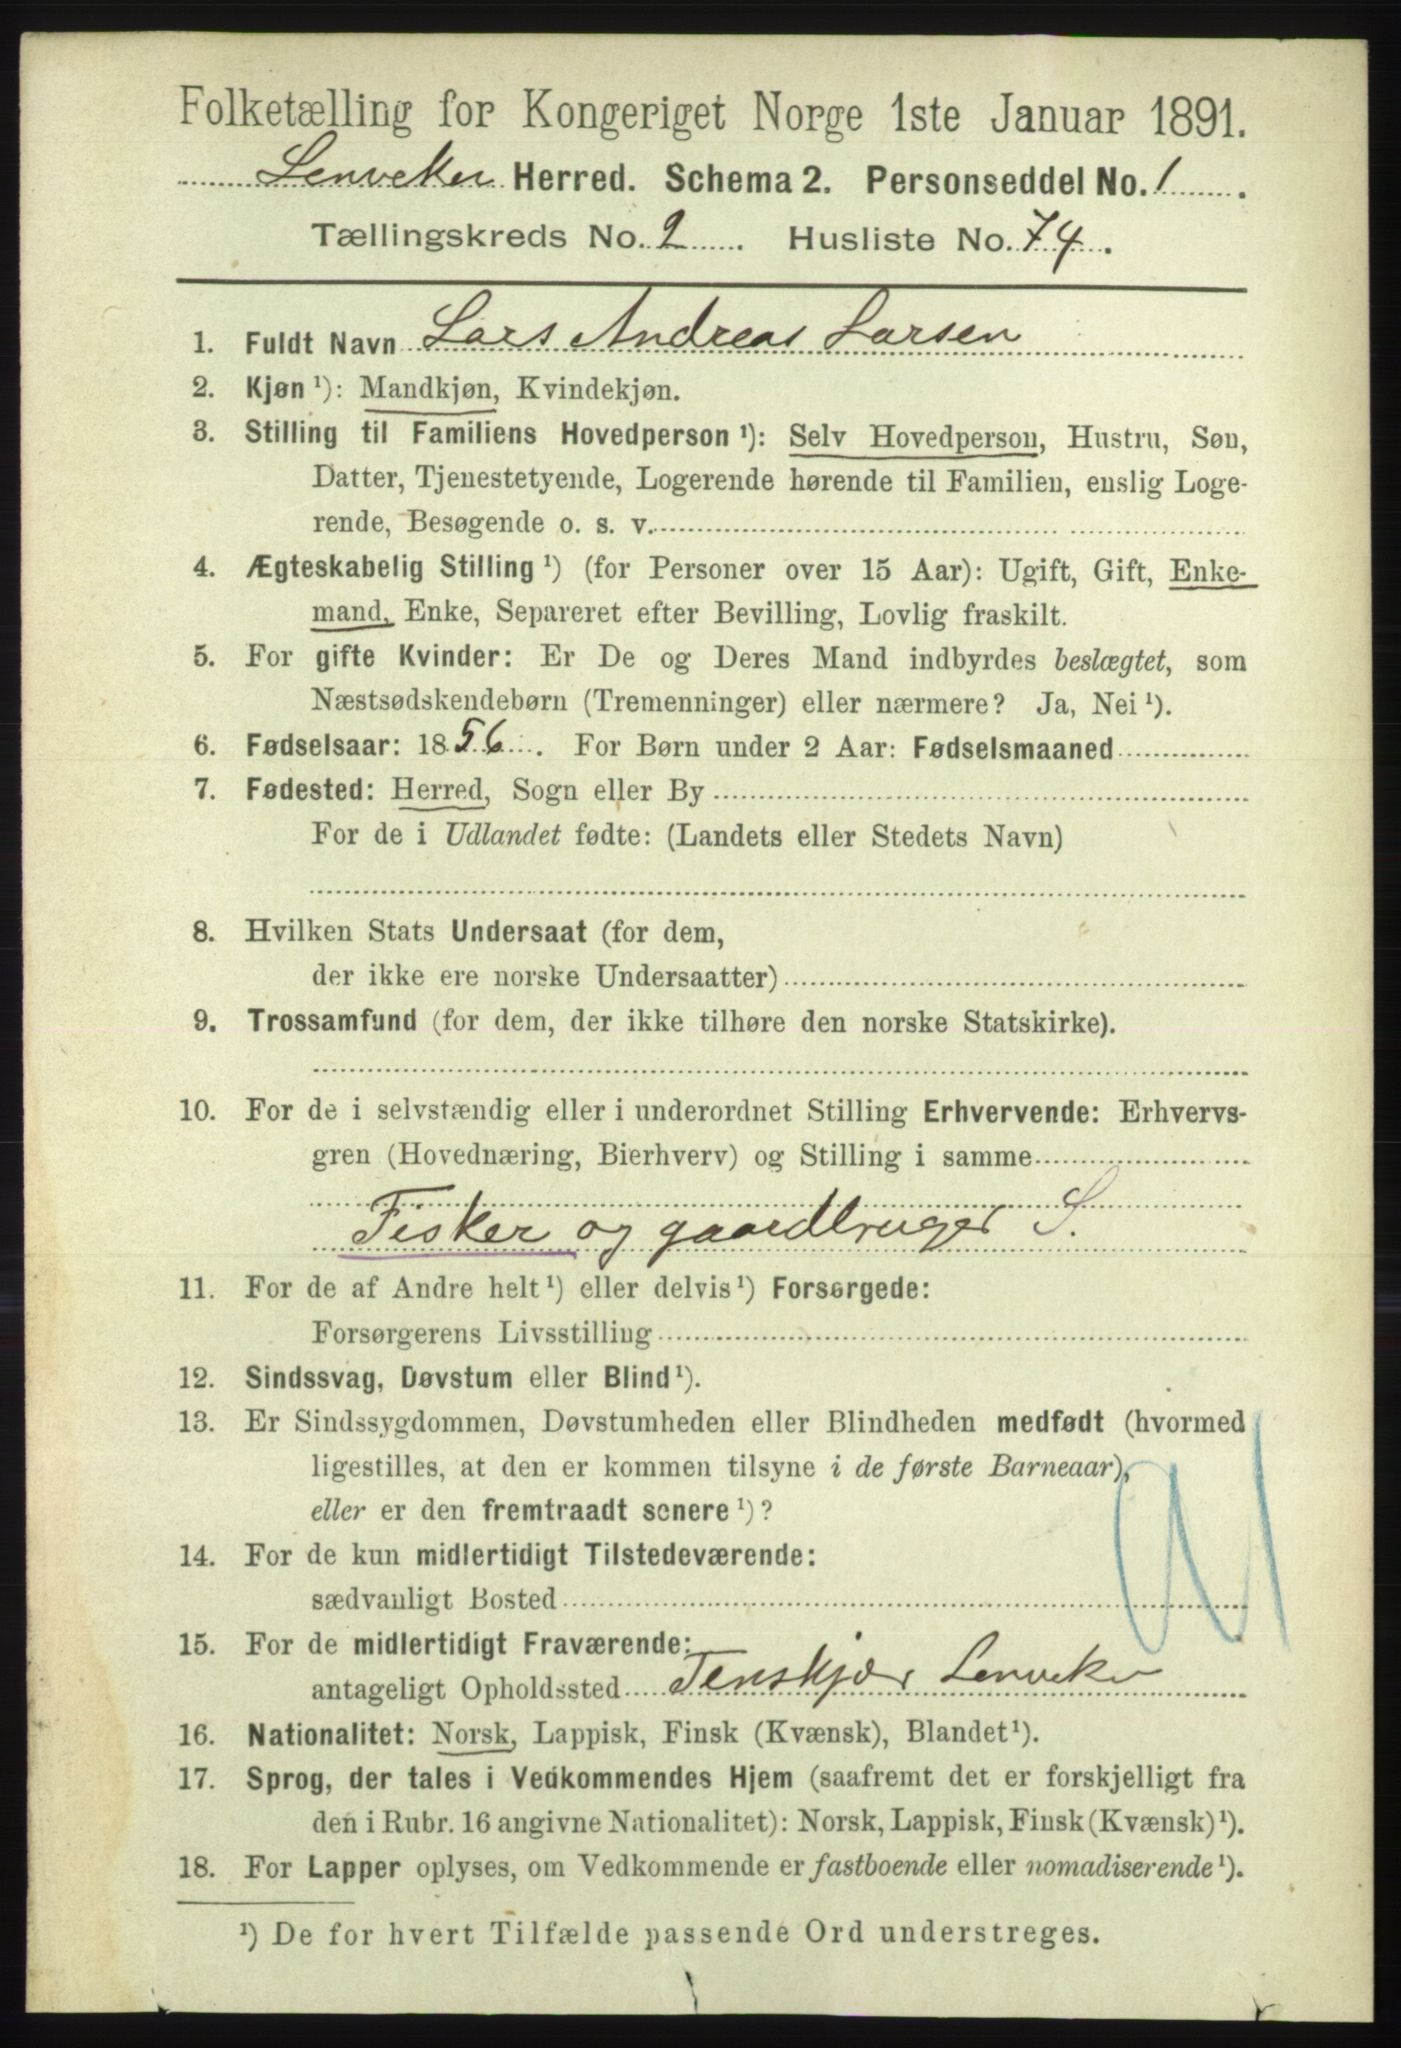 Folketælling for Kongeriget Norge 1ste Januar 1891.
Lenveker Herred. Schema 2. Personseddel No. 1.
Tællingskreds No. 2. Husliste No. 74.
1. Fuldt Navn Lars Andreas Larsen
2. Kjøn ¹): Mandkjøn, Kvindekjøn.
3. Stilling til Familiens Hovedperson ¹): Selv Hovedperson, Hustru, Søn,
Datter, Tjenestetyende, Logerende hørende til Familien, enslig Loge-
rende, Besøgende o. s. v.
4. Ægteskabelig Stilling ¹) (for Personer over 15 Aar): Ugift, Gift, Enke-
mand, Enke, Separeret efter Bevilling, Lovlig fraskilt.
5. For gifte Kvinder: Er De og Deres Mand indbyrdes beslægtet, som
Næstsødskendebørn (Tremenninger) eller nærmere? Ja, Nei ¹).
6. Fødselsaar: 1856. For Børn under 2 Aar: Fødselsmaaned
7. Fødested: Herred, Sogn eller By
For de i Udlandet fødte: (Landets eller Stedets Navn)
8. Hvilken Stats Undersaat (for dem,
der ikke ere norske Undersaatter)
9. Trossamfund (for dem, der ikke tilhøre den norske Statskirke).
10. For de i selvstændig eller i underordnet Stilling Erhvervende: Erhvervs-
gren (Hovednæring, Bierhverv) og Stilling i samme
Fisker og gaardbruger S.
11. For de af Andre helt ¹) eller delvis ¹) Forsørgede:
Forsørgerens Livsstilling
12. Sindssvag, Døvstum eller Blind ¹).
13. Er Sindssygdommen, Døvstumheden eller Blindheden medfødt (hvormed
ligestilles, at den er kommen tilsyne i de første Barneaar),
eller er den fremtraadt senere ¹)?
14. For de kun midlertidigt Tilstedeværende:
sædvanligt Bosted
15. For de midlertidigt Fraværende:
antageligt Opholdssted Tenskjær Lenveker
16. Nationalitet: Norsk, Lappisk, Finsk (Kvænsk), Blandet ¹).
17. Sprog, der tales i Vedkommendes Hjem (saafremt det er forskjelligt fra
den i Rubr. 16 angivne Nationalitet): Norsk, Lappisk, Finsk (Kvænsk) ¹).
18. For Lapper oplyses, om Vedkommende er fastboende eller nomadiserende ¹).
¹) De for hvert Tilfælde passende Ord understreges.